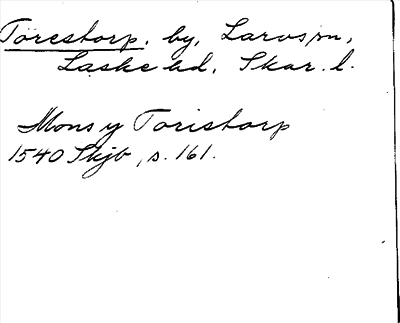 Torestorp, by, Larvs sn,
Laske hd, Skar. l.
Mons y Toristorp
1540 Skjb, s. 161.